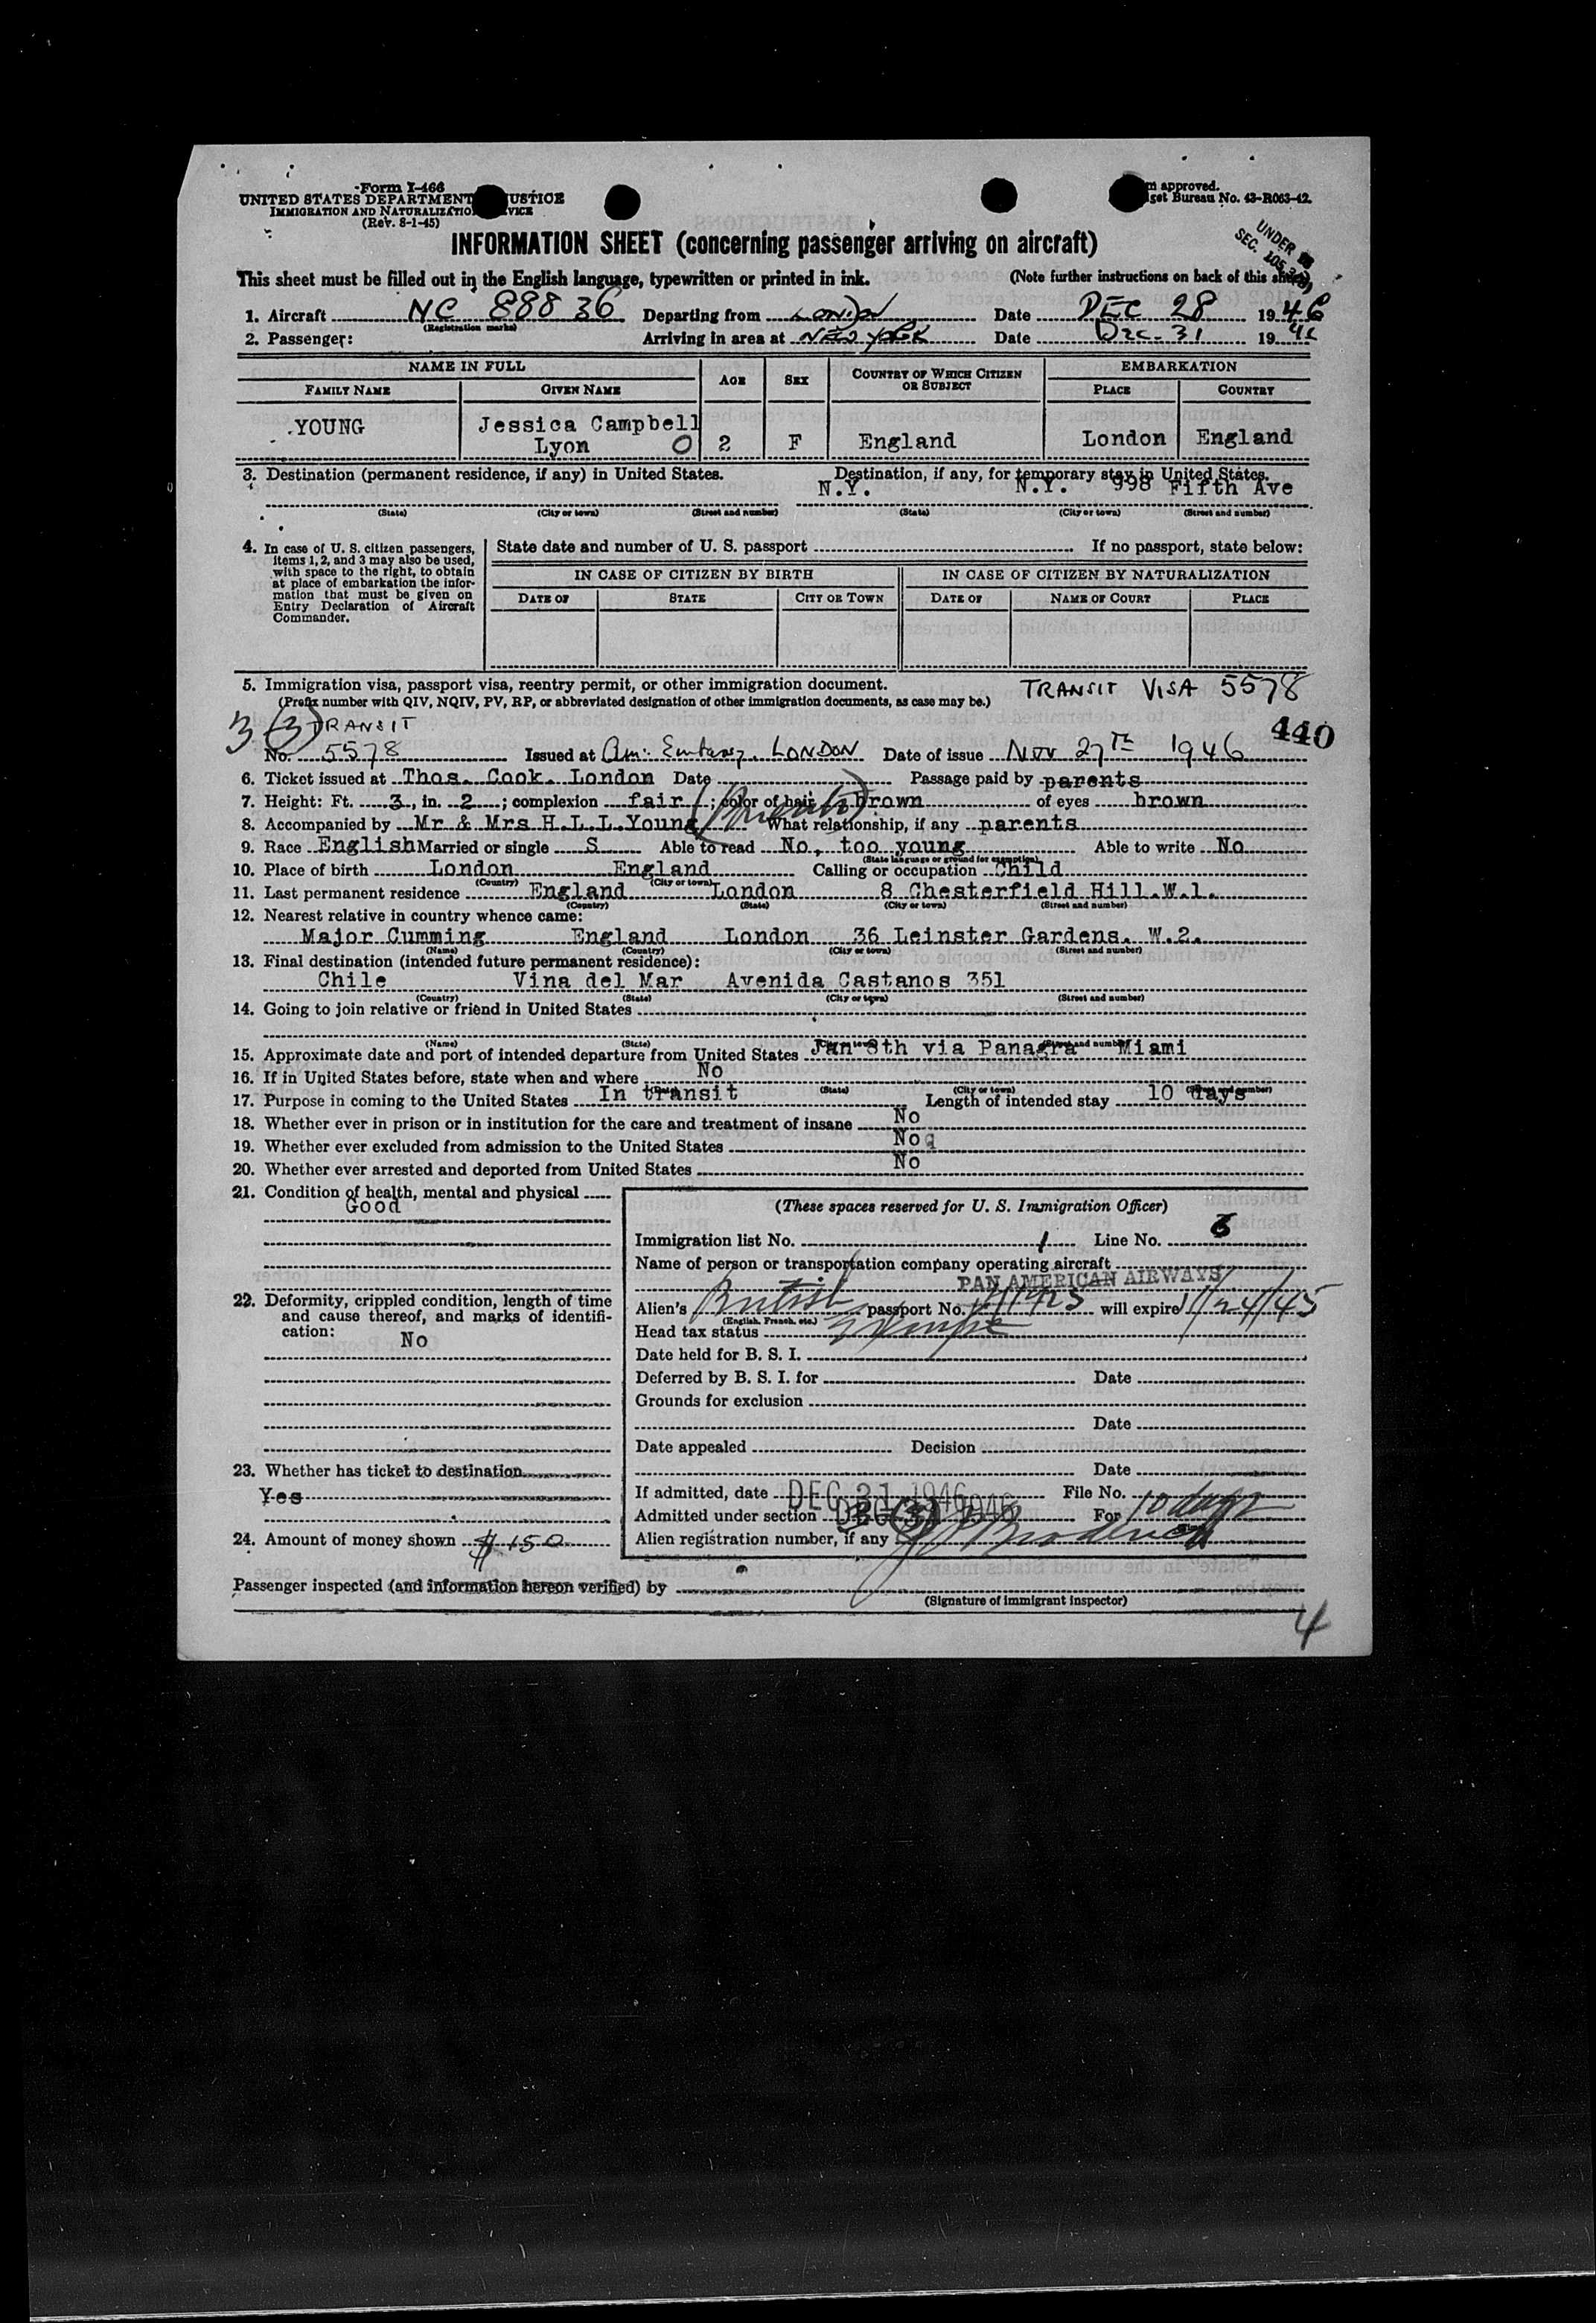 Form I-466
UNITED STATES DEPARTMENT USTICE
IMMIGRATION AND NATURALIZATIO VICE
(Rev. 8-1-45)
m approved.
get Bureau No. 43-R063-42.
UNDER
SEC. 105.3
INFORMATION SHEET (concerning passenger arriving on aircraft)
This sheet must be filled out in the English language, typewritten or printed in ink. (Note further instructions on back of this sheet)
1. Aircraft NC 88836 Departing from LONDON Date DEC 28 1946
(Registration marks)
2. Passenger: Arriving in area at NEW YORK Date DEC. 31 1946
NAME IN FULL AGE SEX COUNTRY OF WHICH CITIZEN OR SUBJECT EMBARKATION
FAMILY NAME GIVEN NAME PLACE COUNTRY
YOUNG Jessica Campbell
Lyon O 2 F England London England
3. Destination (permanent residence, if any) in United States. Destination, if any, for temporary stay in United States.
N.Y. N.Y. 998 Fifth Ave
(State) (City or town) (Street and number) (State) (City or town) (Street and number)
4. In case of U. S. citizen passengers, items 1, 2, and 3 may also be used, with space to the right, to obtain at place of embarkation the information that must be given on Entry Declaration of Aircraft Commander.
State date and number of U. S. passport If no passport, state below:
IN CASE OF CITIZEN BY BIRTH IN CASE OF CITIZEN BY NATURALIZATION
DATE OF STATE CITY OR TOWN DATE OF NAME OF COURT PLACE
5. Immigration visa, passport visa, reentry permit, or other immigration document. TRANSIT VISA 5578
(Prefix number with QIV, NQIV, PV, RP, or abbreviated designation of other immigration documents, as case may be.)
3(3) TRANSIT 440
No. 5578 Issued at Am: Embassy. LONDON Date of issue Nov 27TH 1946
6. Ticket issued at Thos. Cook. London Date Passage paid by parents
7. Height: Ft. 3, in. 2; complexion fair; color of hair brown of eyes brown
8. Accompanied by Mr & Mrs H.L.L.Young (Parents) What relationship, if any parents
9. Race English Married or single S Able to read No, too young Able to write No
(State language or ground for exemption)
10. Place of birth London England Calling or occupation Child
(Country) (City or town)
11. Last permanent residence England London 8 Chesterfield Hill.W.1.
(Country) (State) (City or town) (Street and number)
12. Nearest relative in country whence came:
Major Cumming England London 36 Leinster Gardens. W.2.
(Name) (Country) (City or town) (Street and number)
13. Final destination (intended future permanent residence):
Chile Vina del Mar Avenida Castanos 351
(Country) (State) (City or town) (Street and number)
14. Going to join relative or friend in United States
(Name) (State) (City or town) (Street and number)
15. Approximate date and port of intended departure from United States Jan 8th via Panagra Miami
16. If in United States before, state when and where No
(Date) (State) (City or town) (Street and number)
17. Purpose in coming to the United States In transit Length of intended stay 10 days
18. Whether ever in prison or in institution for the care and treatment of insane No
19. Whether ever excluded from admission to the United States No
20. Whether ever arrested and deported from United States No
21. Condition of health, mental and physical
Good
22. Deformity, crippled condition, length of time and cause thereof, and marks of identification:
No
23. Whether has ticket to destination
Yes
24. Amount of money shown $150
(These spaces reserved for U. S. Immigration Officer)
Immigration list No. 1 Line No. 6
Name of person or transportation company operating aircraft
PAN AMERICAN AIRWAYS
Alien's British passport No. will expire
(English, French, etc.)
Head tax status Exempt
Date held for B. S. I.
Deferred by B. S. I. for Date
Grounds for exclusion
Date
Date appealed Decision
Date
If admitted, date DEC 31 1946 File No.
Admitted under section 3(3) DEC 1946 For 10 days
Alien registration number, if any
Passenger inspected (and information hereon verified) by
(Signature of immigrant inspector)
4